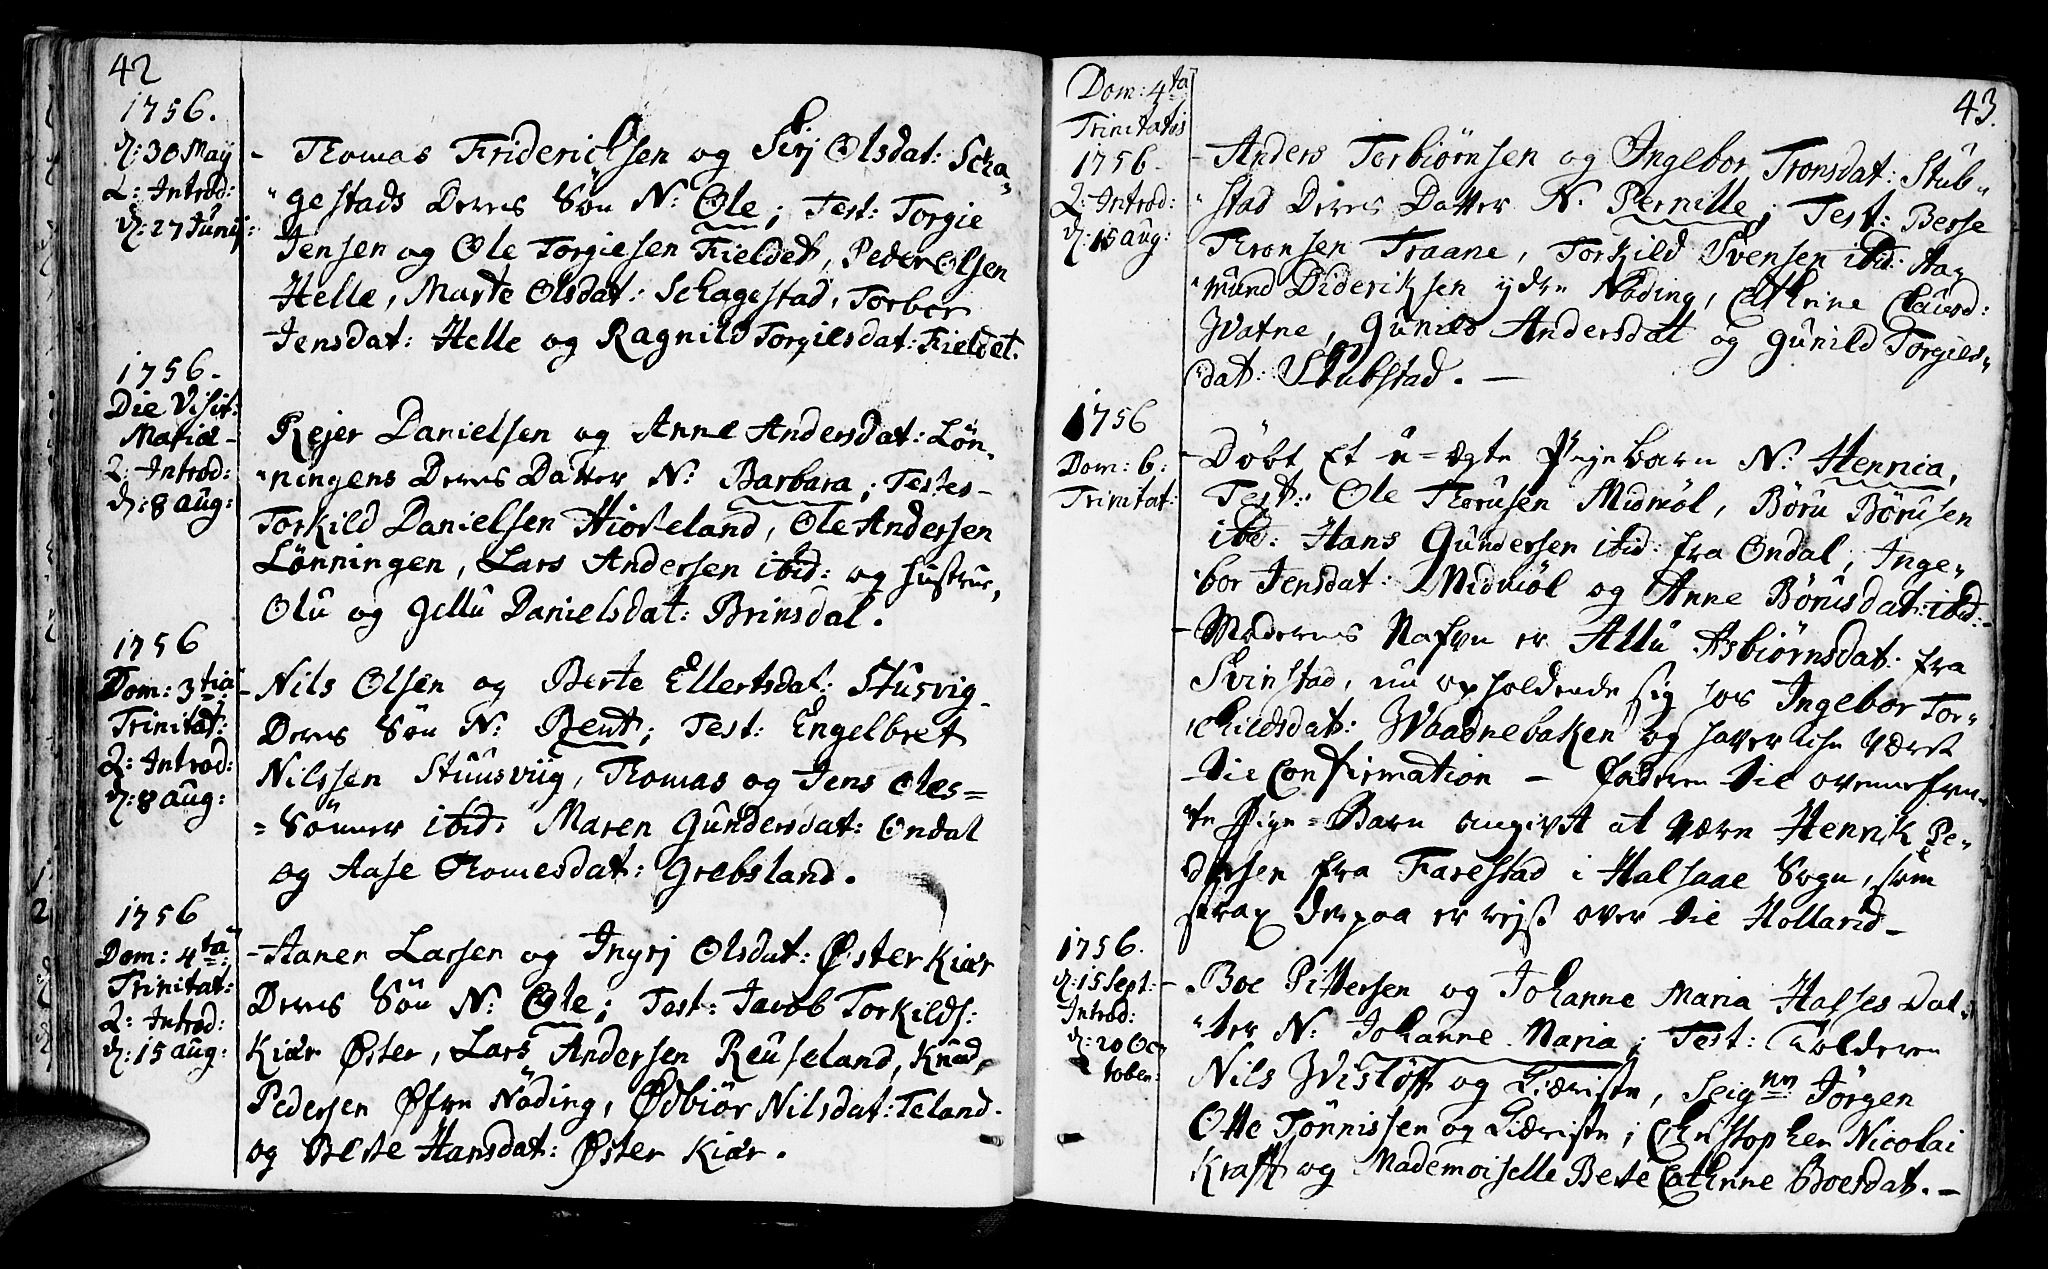 42
1756.
d: 30 May
2: Introd:
d: 27 Junij:
- Thomas Friderichsen og Sirj Olsdat: Scha„
„gestads Deres Sön N: Ole; Test: Torgie
Jensen og Ole Torgiesen Fieldet, Peder Olsen
Helle, Marte Olsdat: Schagestad, Torbor
Jensdat: Helle og Ragnild Torgilsdat: Fieldet.
1756.
Die Visit:
Mariæ -
2: Introd:
d: 8 aug:
Rejer Danielsen og Anne Andersdat: Lön„
„ningens Deres Datter N: Barbara; Testes-
Torkild Danielsen Hiorteland, Ole Andersen
Lönningen, Lars Andersen ibid: og hustrue,
Olu og Jellu Danielsdat: Brinsdal.
1756
Dom: 3tia
Trinitat:
2: Introd:
d: 8 aug:
- Nils Olsen og Berte Ellertsdat: Stusvig
Deres Sön N: Bent; Test: Engelbret
Nilssen Stuusviig, Thomas og Jens Oles=
=Sönner ibid: Maren Gundersdat: Ondal
og Aase Thomesdat: Grebsland.
1756
Dom: 4ta
Trinitat:
2: Introd:
d: 15 aug:
- Haner Larsen og Ingrj Olsdat: Øster Kiær
Deres Sön N: Ole; Test: Jacob Torkilds:
Kiær Øster, Lars Andersen Reuseland, Knud
Pedersen Øfre Nöding, Ødbiör Nilsdat: Teland.
og Berte Hansdat: Øster Kiær.
43.
Dom: 4ta
Trinitatis
1756.
2: Introd:
d: 15 aug:
- Anders Torbiörnsen og Ingebor Tronsdat: Stub„
„stad Deres Datter N: Pernille; Test: Berse
Tronsen Traane, Torkild Svensen ibid: Aa„
„mund Dideriksen ydre Nöding, Cathrine Clausd:
Watne, Gunild Andersdat og Gunild Torgils„
„dat: Stubstad. -
1756
Dom: 6:
Trinitat:
- Döbt Et u=ægte Pigebarn N: Hennica,
Test: Ole Torusen Midmöl, Böru Börusen
ibd: Hans Gundersen ibid: fra Ondal, Inge„
„bor Jensdat: Midmöl og Anne Börusdat: ibid:
- Moderens Nafn er Allu Asbiörnsdat: fra
Svinstad, nu opholdende sig hos Ingebor Tor„
„childsdat: Waadnebaken og haver icke været
til Confirmation - Faderen til ovennefn„
„te Pige=Barn angivet at være Henrik Pe„
dersen fra Farestad i Halsaae Sogn, som
strax derpaa er rejst over til Holland -
1756.
d: 15 Sept:
Introd:
d: 20 Oc„
tober:
- Boe Pittersen og Johanne Maria Halses Dat„
„ter N: Johanne Maria; Test: Tolderen
Nils Wislöff og Kiæriste, Seignr Jörgen
Otte Tönnissen og Kiæriste; Christopher Nicolai
Krafft og Mademoiselle Berte Cathrine Boesdat. -